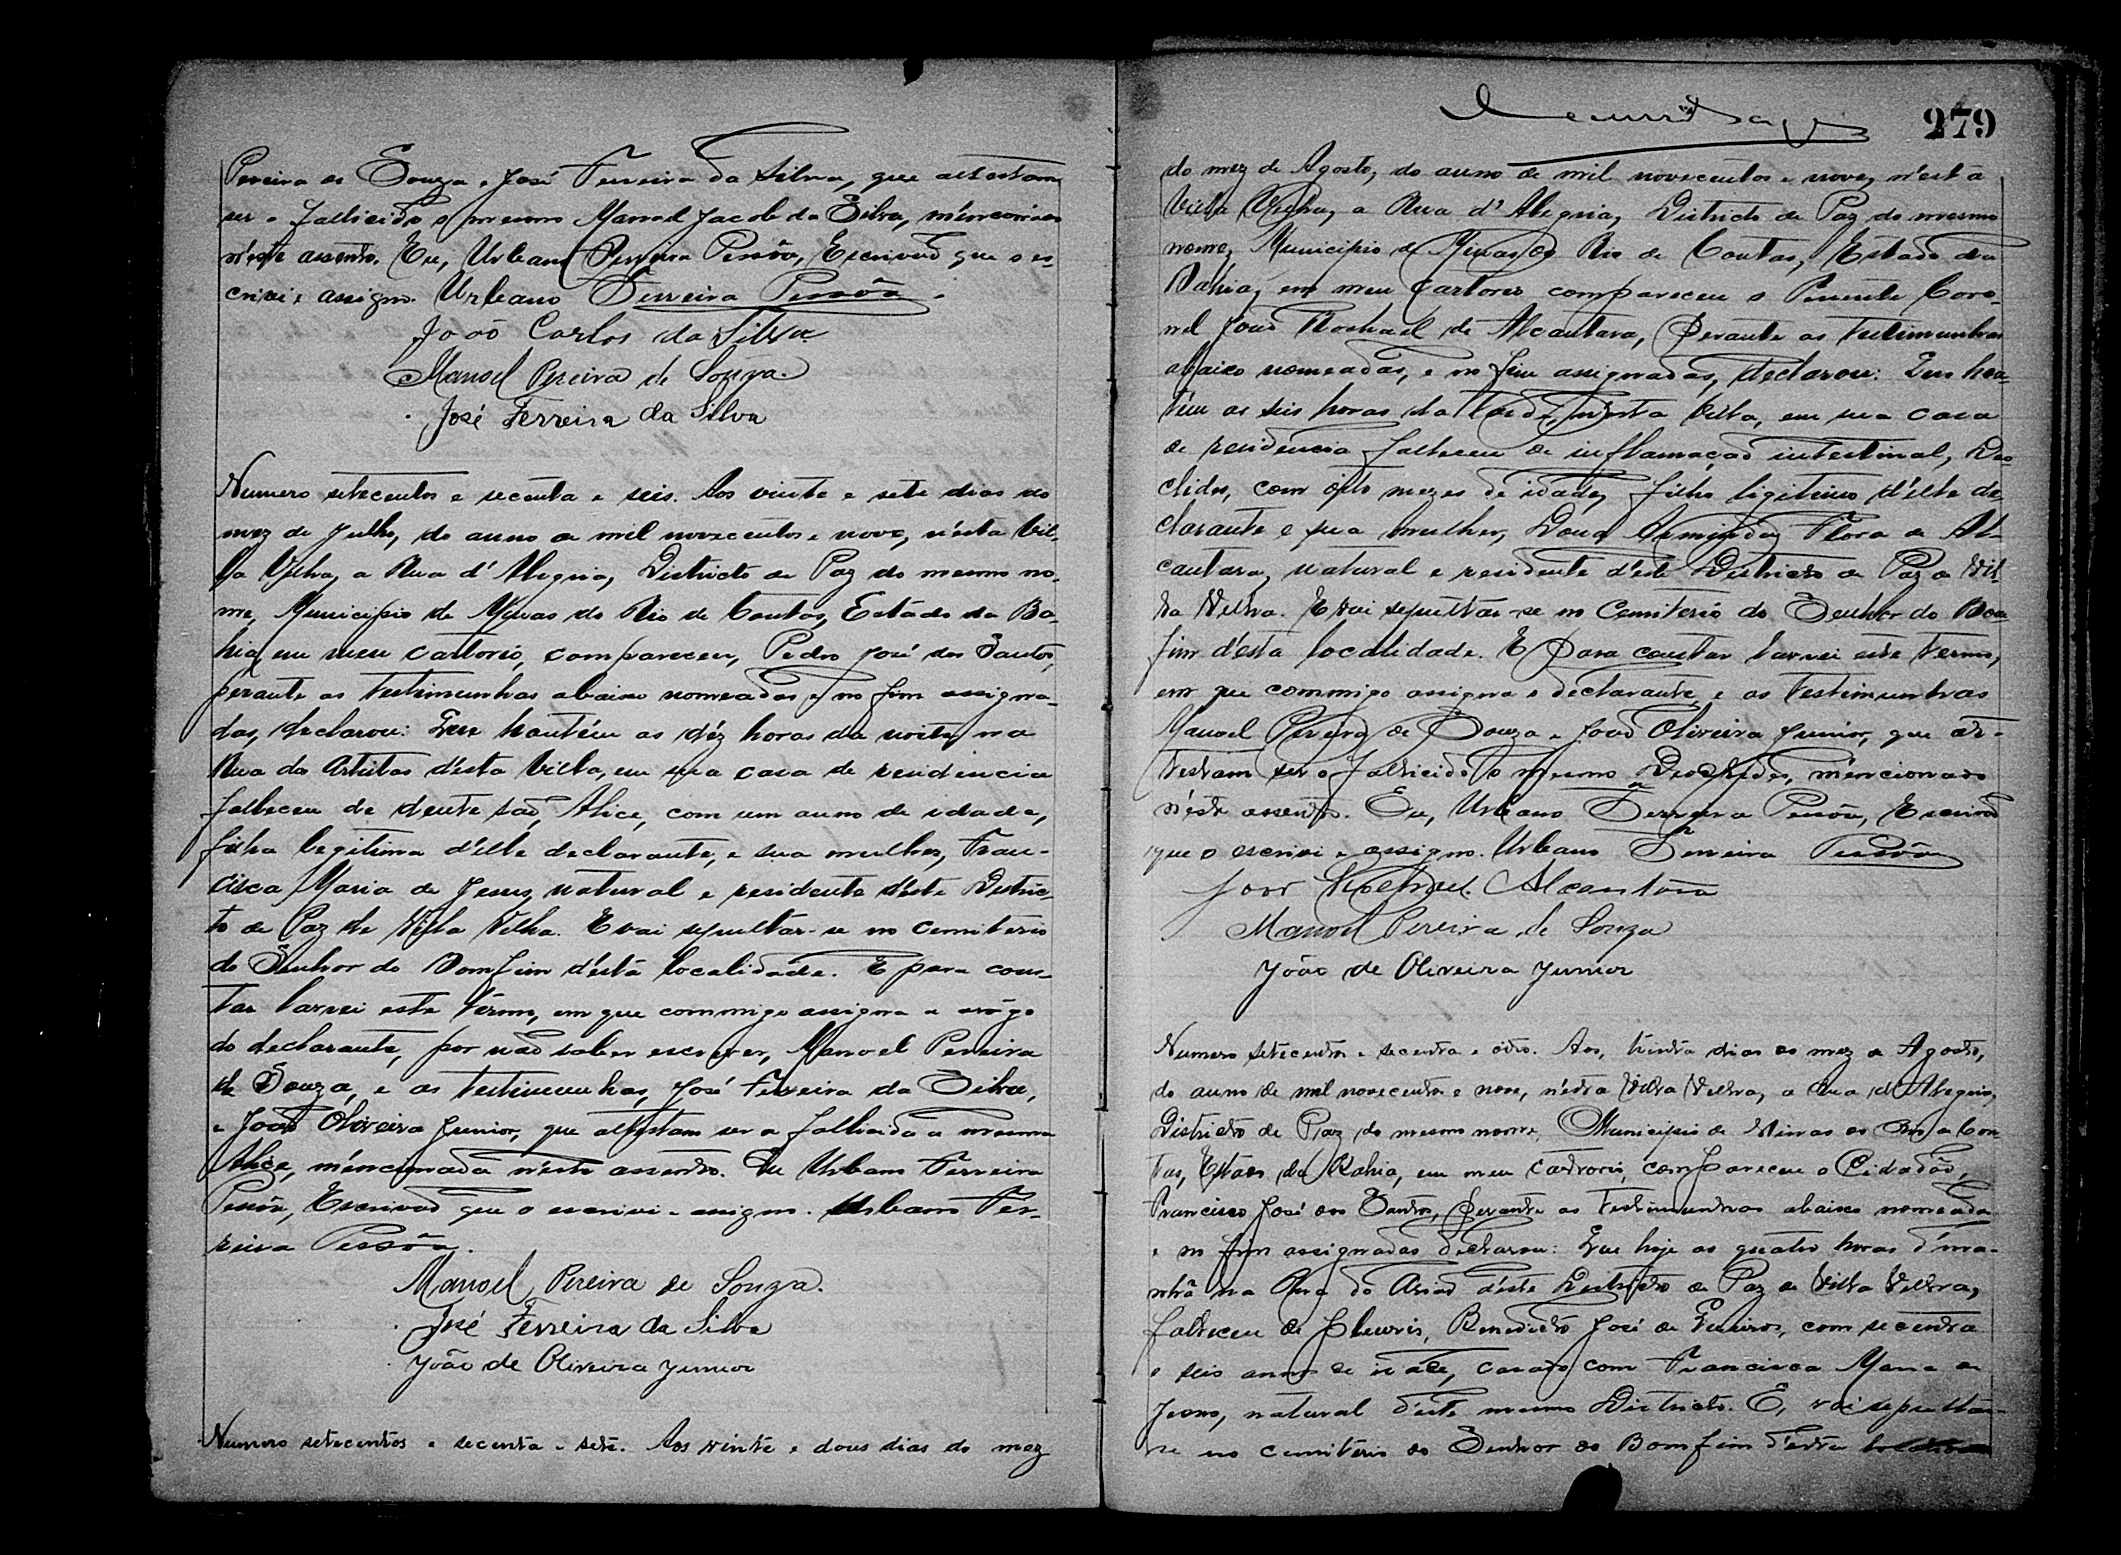 Pereira de Souza e José Ferreira da Silva, que attestam
ser o fallicido o mesmo Manoel Jacob da Silva, mencionado
n'este assento. Eu, Urbano Ferreira Pessôa, Escrivaõ que o es-
crivi e assigno. Urbano Ferreira Pessôa.
Joaõ Carlos da Silva.
Manoel Pereira de Souza.
José Ferreira da Silva
Numero setecentos e secenta e seis. Aos vinte e sete dias do
mez de Julho, do anno de mil novecentos e nove, n'esta Vil-
la Velha, a Rua d'Alegria, Districto de Paz do mesmo no-
me, Municipio de Minas do Rio de Contas, Estado da Ba-
hia, em meu cartorio, compareceu, Pedro José dos Santos,
perante as testimunhas abaixo nomeadas e no fim assigna-
das, declarou: Que hontém as déz horas da noite, na
Rua da Artistas d'esta Villa, em sua casa de residencia
falleceu de dentesaõ, Alice, com um anno de idade,
filha legitima d'elle declarante, e sua mulher, Fran-
cisca Maria de Jesus, natural e residente d'este Distric-
to de Paz de Villa Velha. E vai sepultar-se no cemiterio
do Senhor do Bomfim d'esta localidade. E para cons-
tar lavrei este térmo, em que commigo assigna a rôgo
do declarante, por naõ saber escrever, Manoel Pereira
de Souza, e as testimunhas, José Ferreira da Silva,
e Joaõ Oliveira Junior, que attestam ser a fallicida a mesma
Alice, mencionada n'este assento. Eu Urbano Ferreira
Pessôa, Escrivaõ que o escrivi e assigno. Urbano Fer-
reira Pessôa.
Manoel Pereira de Souza.
José Ferreira da Silva
João de Oliveira Junior
Numero setecentos e secenta e sete. Aos vinte e dous dias do mez
279
do mez de Agosto, do anno de mil novecentos e nove, n'esta
Villa Velha, a Rua d'Alegria, Districto de Paz do mesmo
nome, Municipio de Minas do Rio de Contas, Estado da
Bahia, em meu Cartorio compareceu o Tenente Coro-
nel Joaõ Rochael de Alcantara, perante as testimunhas
abaixo nomeadas, e no fim assignadas, declarou: Que hon-
tém as seis horas da tarde, n'esta Villa, em sua casa
de residencia falleceu de inflamaçaõ intestinal, Deo-
clides, com oito mezes de idade, filho ligitimo d'elle de-
clarante e sua mulher, Dona Flora de Al-
cantara, natural e residente d'este Districto de Paz de Vil-
la Velha. E vai sepultar-se no Cemiterio do Senhor do Bom
fim d'esta localidade. E para constar lavrei este termo,
em que commigo assigna o declarante, e as testimunhas
Manoel Pereira de Souza e Joaõ Oliveira Junior, que at-
testam ser o fallicido o mesmo Deoclides, mencionado
n'este assento. Eu, Urbano Ferreira Pessôa, Escrivaõ
que o escrivi e assigno. Urbano Ferreira Pessôa
Joaõ Rochael Alcantara
Manoel Pereira de Souza
João de Oliveira Junior
Numero setecentos e secenta e oito. Aos, trinta dias do mez de Agosto,
do anno de mil novecentos e nove, n'esta Villa Velha, a Rua d'Alegria,
Districto de Paz do mesmo nome, Municipio de Minas do Rio de Con
tas, Estado da Bahia, em meu cartorio, compareceu o Cidadão,
Francisco José dos Santos, perante as testimunhas abaixo nomeadas
e no fim assignadas declarou: Que hoje as quatro horas d'ma-
nhã na Rua do d'este Districto de Paz de Villa Velha,
falleceu de pleuris, Benedicto José de, com secenta
e seis annos de idade, casado com Francisca Maria de
Jesus, natural d'este mesmo Districto. E, vai sepultar-
se no cemiterio do Senhor do Bomfim d'esta